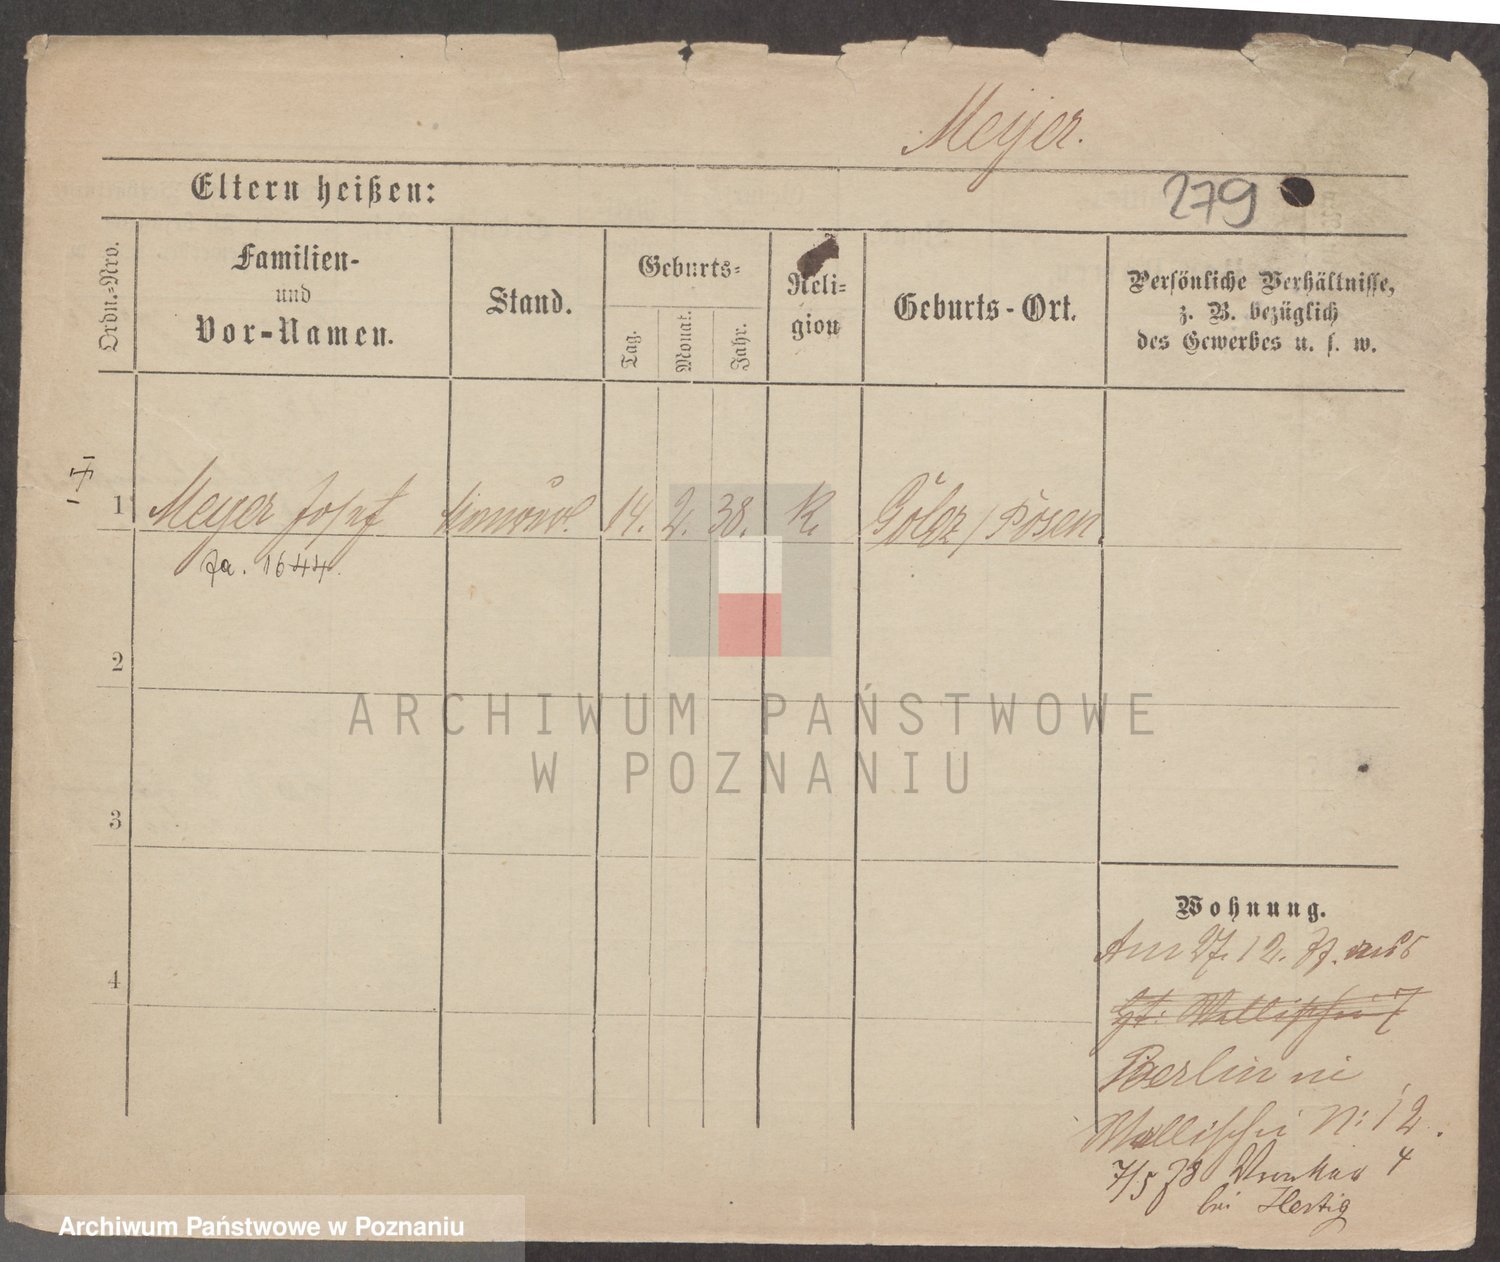 Meyer.
Eltern heißen:
279
Ordn.-Nro.
Familien-
und
Vor-Namen.
Stand.
Geburts-
Tag.
Monat.
Jahr.
Reli-
gion
Geburts-Ort.
Persönliche Verhältnisse,
z. B. bezüglich
des Gewerbes u. s. w.
1 Meyer Josef 14. 2. 38. K. / Posen.
Fa. 1644.
2
ARCHIWUM PAŃSTWOWE
W POZNANIU
3
Wohnung.
Am 27. 12. 77. aus
4
Wallischei 7
Berlin in
Wallischei N: 12.
7/5 78 Wronker 4
bei Hertig
Archiwum Państwowe w Poznaniu